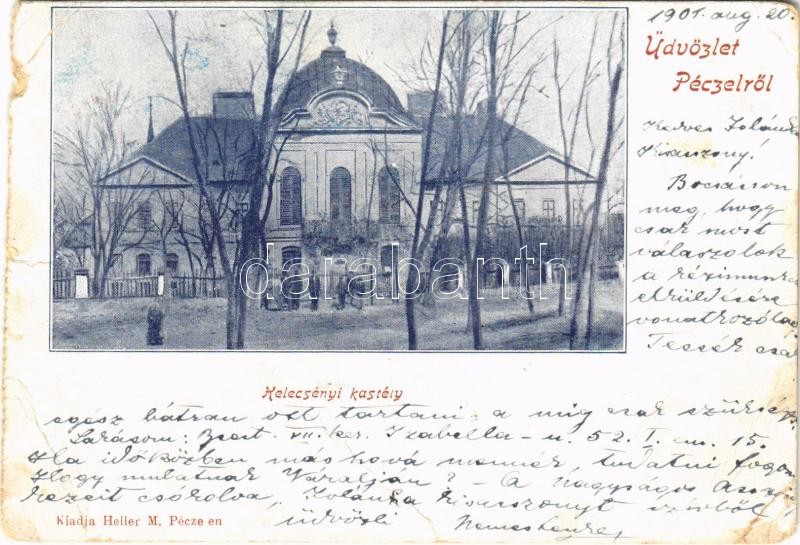 1901. aug. 20.
Üdvözlet
Péczelről
Kedves Jolánka
Kisaszony!
Bocsásson
meg, hogy
csak most
válaszolok
a kézimunka
elküldésére
vonatkozólag
Tessék csak
darabanth
Kelecsényi kastély
egész bátran ott tartani, a mig csak szükség
Lakásom: Bpest. VII. ker. Izabella-u. 52. I. em. 15.
Ha időközben máshová mennék, tudatni fogom
Hogy mulatnak Váralján? - A nagyságos Asszony
kezeit csókolva, Jolánka kisasszonyt szívből
üdvözli
Kiadja Heller M. Péczelen